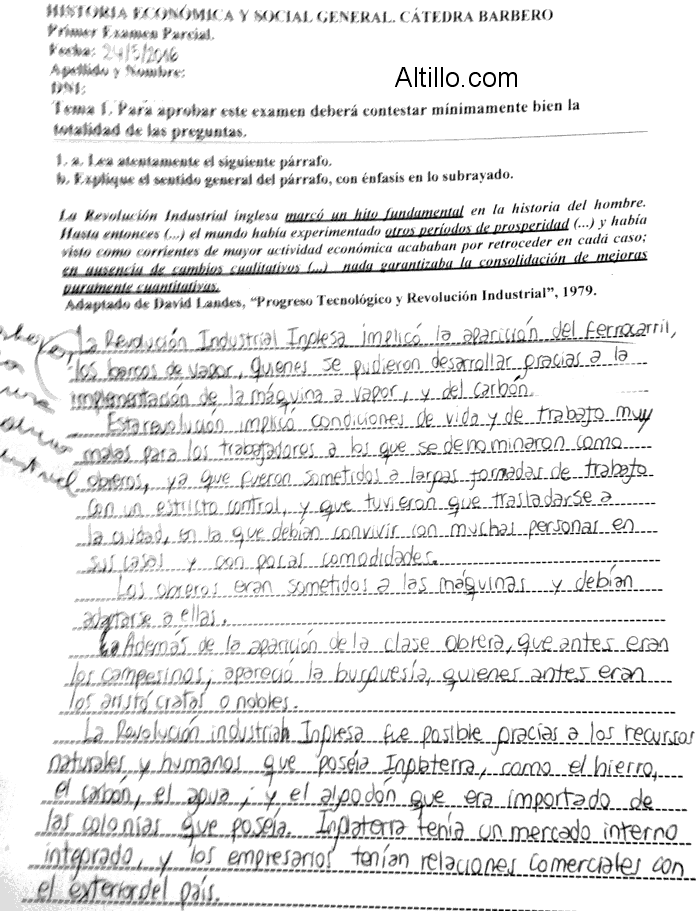 HISTORIA ECONÓMICA Y SOCIAL GENERAL. CÁTEDRA BARBERO
Primer Examen Parcial.
Fecha: 24/5/2016
Apellido y Nombre:
Altillo.com
DNI:
Tema 1. Para aprobar este examen deberá contestar mínimamente bien la
totalidad de las preguntas.
1. a. Lea atentamente el siguiente párrafo.
b. Explique el sentido general del párrafo, con énfasis en lo subrayado.
La Revolución Industrial inglesa marcó un hito fundamental en la historia del hombre.
Hasta entonces (...) el mundo había experimentado otros períodos de prosperidad (...) y había
visto como corrientes de mayor actividad económica acababan por retroceder en cada caso;
en ausencia de cambios cualitativos (...) nada garantizaba la consolidación de mejoras
puramente cuantitativas.
Adaptado de David Landes, “Progreso Tecnológico y Revolución Industrial”, 1979.
La Revolución Industrial Inglesa implicó la aparición del ferrocarril,
los barcos de vapor, quienes se pudieron desarrollar gracias a la
implementación de la máquina a vapor, y del carbón.
Esta revolución implicó condiciones de vida y de trabajo muy
malas para los trabajadores a los que se denominaron como
obreros, ya que fueron sometidos a largas jornadas de trabajo
con un estricto control, y que tuvieron que trasladarse a
la ciudad, en la que debían convivir con muchas personas en
sus casas y con pocas comodidades.
Los obreros eran sometidos a las máquinas y debían
adaptarse a ellas.
Además de la aparición de la clase obrera, que antes eran
los campesinos; apareció la burguesía, quienes antes eran
los aristócratas o nobles.
La Revolución industrial Inglesa fue posible gracias a los recursos
naturales y humanos que poseía Inglaterra, como el hierro,
el carbón, el agua, y el algodón que era importado de
las colonias que poseía. Inglaterra tenía un mercado interno
integrado, y los empresarios tenían relaciones comerciales con
el exterior del país.